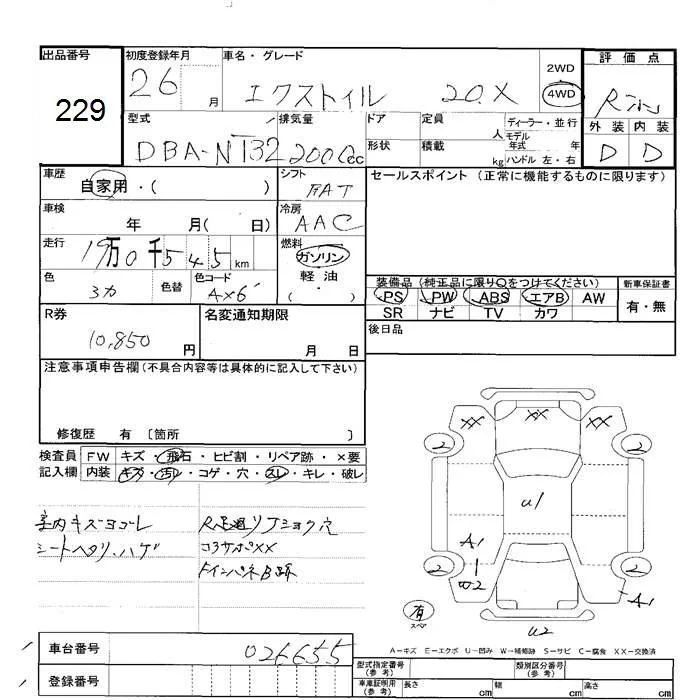 出品番号
229
初度登録年月
26 月
車名・グレード
エクストレイル 20X
2WD
4WD
評価点
R
外装 内装
D D
型式
DBA-NT32
排気量
2000cc
ドア
形状
定員 人
積載 kg
ディーラー・並行
モデル
年式 年
ハンドル 左・右
車歴
自家用・( )
シフト
FAT
セールスポイント (正常に機能するものに限ります)
車検
年 月( 日)
冷房
AAC
走行
19万0千545km
燃料
ガソリン
軽油
( ・ )
色
色替
色コード
装備品 (純正品に限り○をつけてください)
PS PW ABS エアB AW
SR ナビ TV カワ
新車保証書
有・無
R券
10,850円
名変通知期限
月 日
後日品
注意事項申告欄(不具合内容等は具体的に記入して下さい)
修復歴 有 〔箇所 〕
検査員 FW キズ・飛石・ヒビ割・リペア跡・×要
記入欄 内装 キズ・汚レ・コゲ・穴・スレ・キレ・破レ
室内キズヨゴレ
シートヘタリ、ハゲ
R足廻リフショク穴
コアサポXX
XX XX XX
2 2
U1
A1
W2
2 2
A1
有
スペア
U2
A-キズ E-エクボ U-凹み W-補修跡 S-サビ C-腐食 XX-交換済
車台番号
026655
登録番号
型式指定番号
(参考)
類別区分番号
(参考)
車庫証明用
(参考)
長さ cm
幅 cm
高さ cm